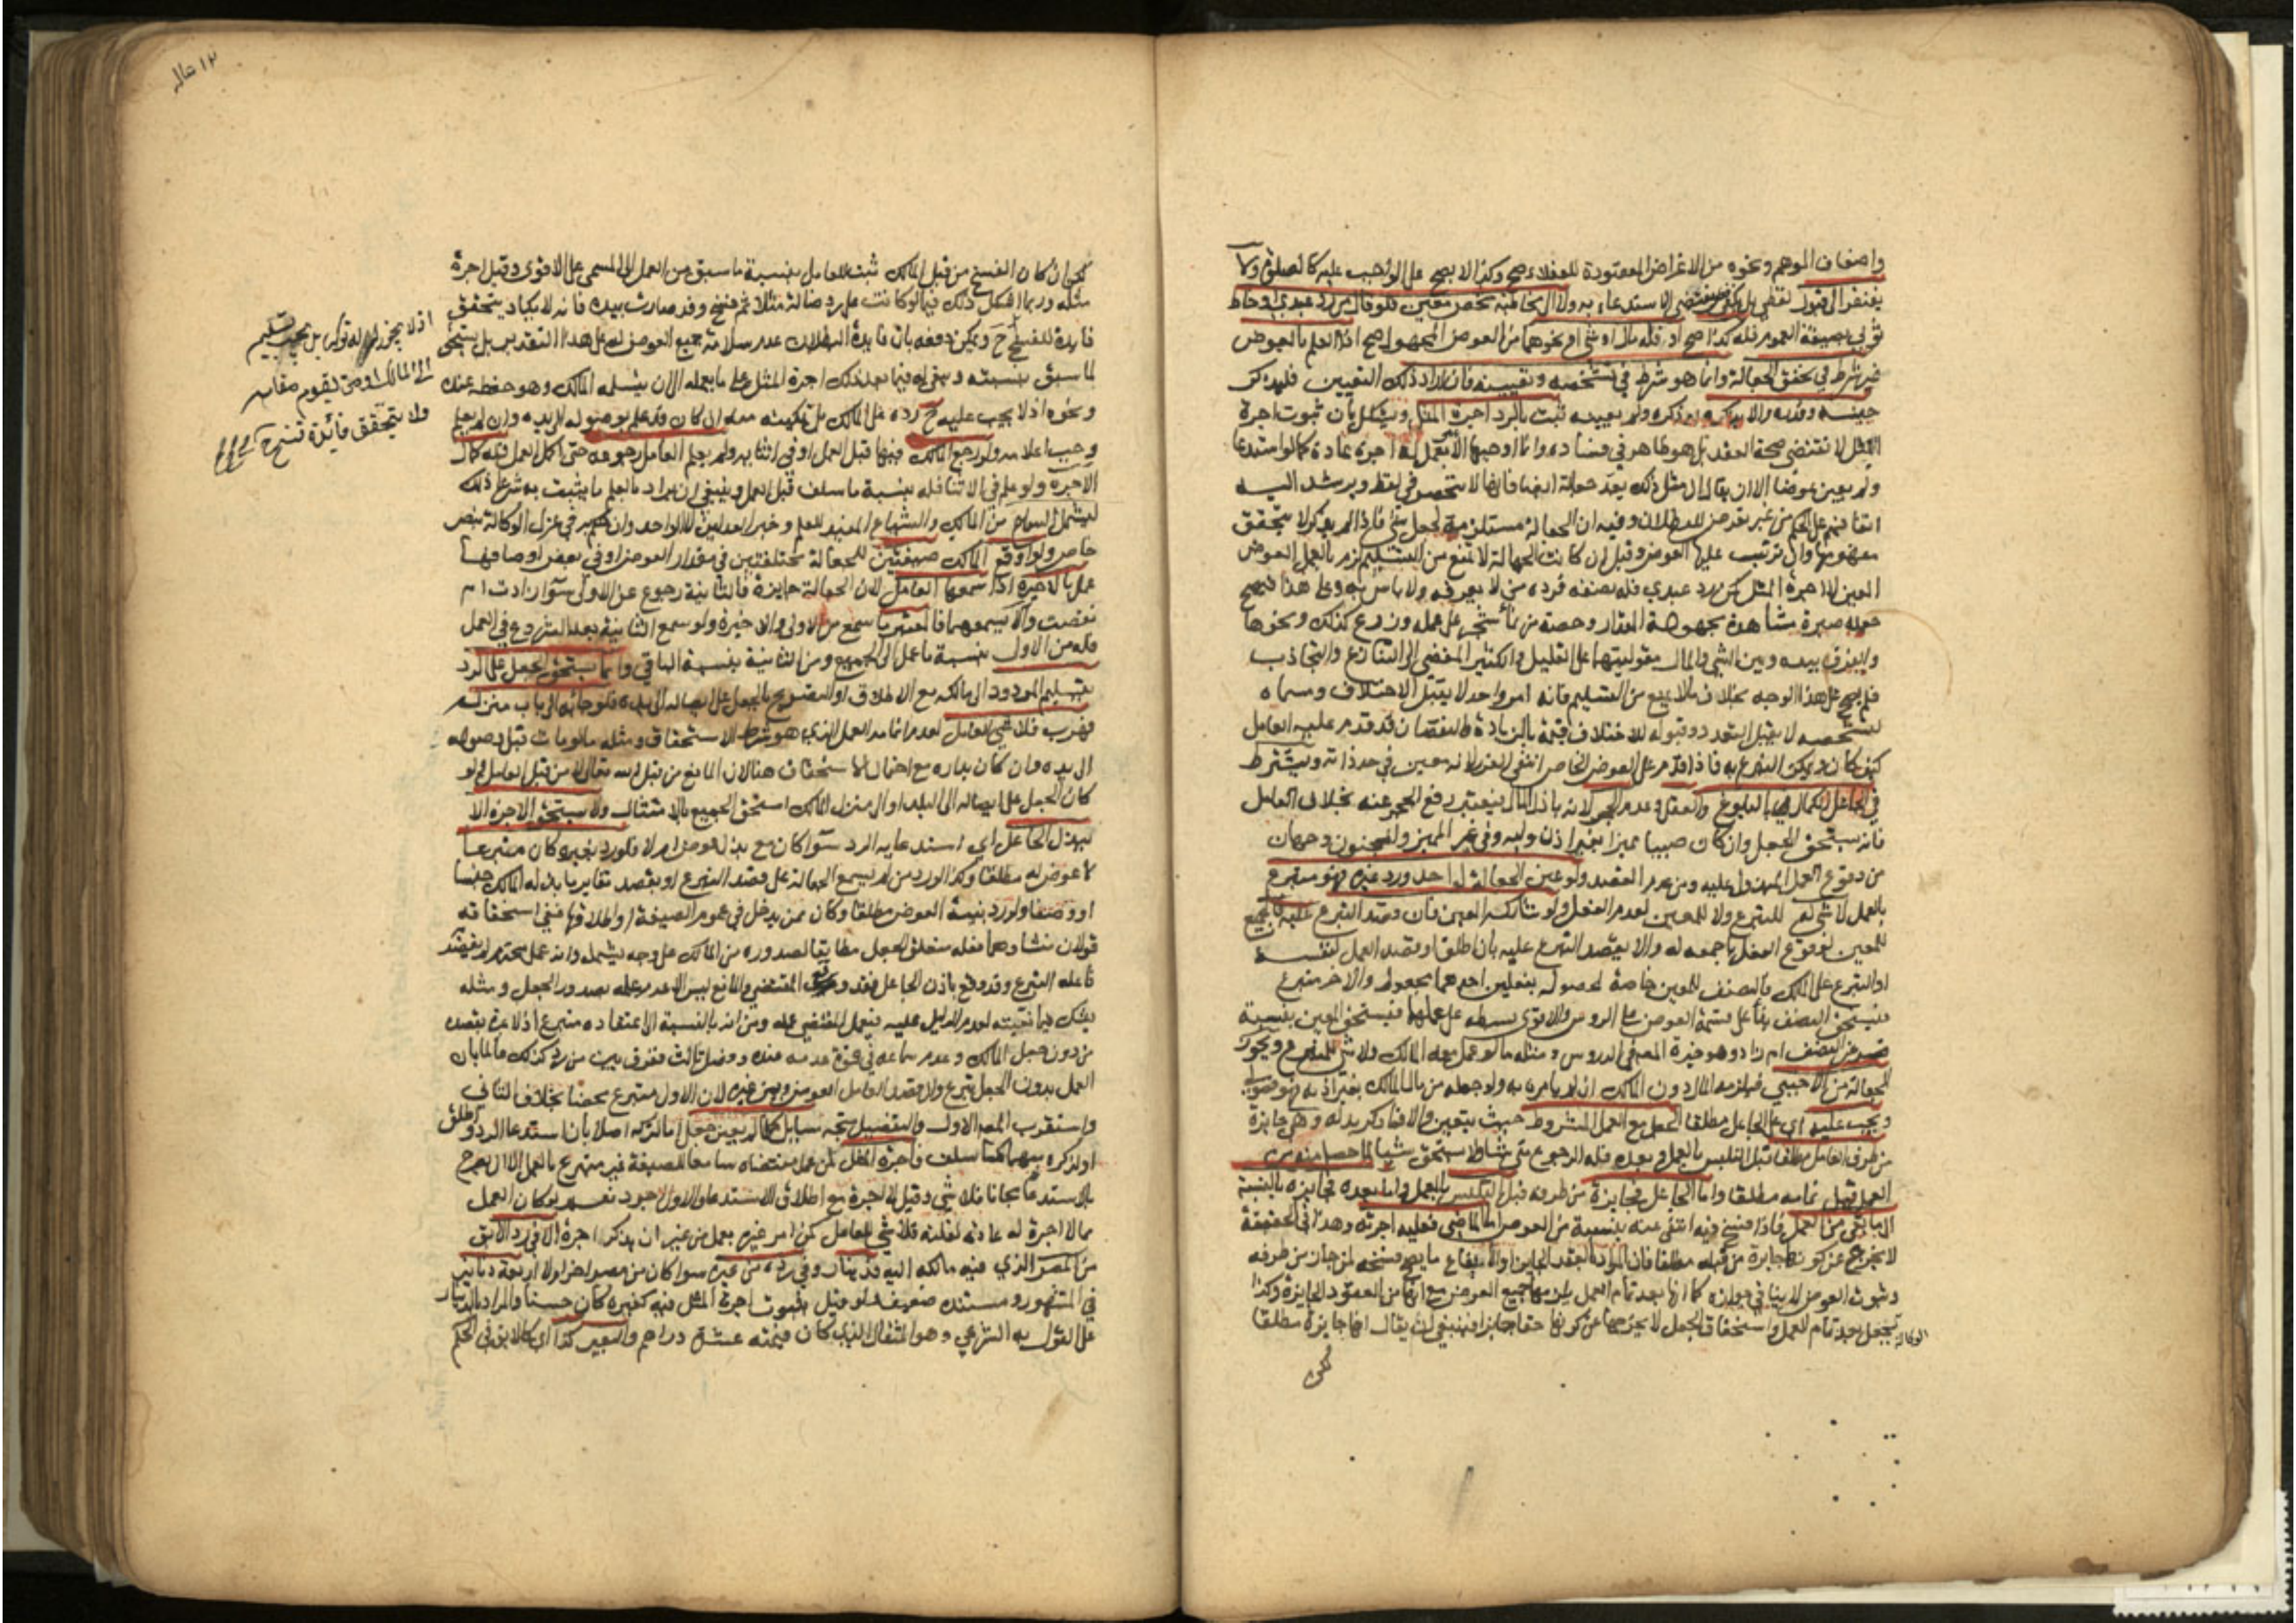 واضعاف الموهم ونحوه من الاغراض المقصودة للعقلاء صح وكذا لا يصح على الواجب عليه كالصلوة ولا
يفتقر الى قبول لفظي بل يكفي فعل مقتضى الاستدعاء به ولا الى مخاطبة شخص معين فلو قال من رد عبدي او خاط
ثوبي بصيغة العموم فله كذا صح او فله مال او شي او نحوهما من العوض المجهول صح اذ العلم بالعوض
غير شرط في تحقق الجعالة وانما هو شرط في تشخصه وتعيينه فان اراد ذلك التعيين فليذكر
جنسه وقدره والا يذكره او ذكره ولم يعينه ثبت بالرد اجرة المثل ويشكل بان ثبوت اجرة
المثل لا تقتضي صحة العقد بل هو ظاهر في فساده وانما اوجبها الامر بعمل له اجرة عادة كما لو استدعاه
ولم يعين عوضا الا ان يقال ان مثل ذلك يعد جعالة ايضا فانها لا تنحصر في لفظ ويرشد اليه
اتفاقهم على الحكم من غير تعرض للبطلان وفيه ان الجعالة مستلزمة لجعل شي فاذا لم يذكر لا يتحقق
مفهومها وان ترتب عليها العوض وقيل ان كانت الجهالة لا تمنع من التسليم لزم بالعمل العوض
المعين لا اجرة المثل كمن رد عبدي فله نصفه فرده من لا يعرفه ولا باس به وعلى هذا فيصح
جعله صبرة مشاهدة مجهولة المقدار وحصة من نماء شجر على عمله وزرع كذلك ونحوها
والفرق بينه وبين الشي والمال مقوليتهما على القليل والكثير المفضي الى التنازع والتجاذب
فلم يصح على هذا الوجه بخلاف ما لا يمنع من التسليم فانه امر واحد لا يقبل الاختلاف ومسماه
لتشخصه لا يقبل التعدد وقبوله للاختلاف قيمة بالزيادة والنقصان قد قدم عليه العامل
كيف كان ويمكن التبرع به فاذا قدم على العوض الخاص انتفى الغرر لانه معين في حد ذاته ويشترط
في الجاعل الكمال بالبلوغ والعقل وعدم الحجر لانه باذل المال فيعتبر رفع الحجر عنه بخلاف العامل
فانه يستحق الجعل وان كان صبيا مميزا بغير اذن وليه وفي غير المميز والمجنون وجهان
من وقوع العمل المبذول عليه ومن عدم القصد ولو عين الجعالة لواحد ورد غيره فهو متبرع
بالعمل لا شي له للتبرع ولا للمعين لعدم الفعل ولو شارك المعين فان قصد التبرع عليه فالجميع
للمعين لوقوع الفعل باجمعه له والا يقصد التبرع عليه بان اطلق او قصد العمل لنفسه
او التبرع على المالك فالنصف للمعين خاصة لحصوله بفعلين احدهما مجعول له والاخر متبرع
فيستحق النصف بناء على قسمة العوض على الرؤس والاقوى بسطه على عملهما فيستحق المعين بنسبة
قصد عن النصف ام زاد وهو خيرة المصر في الدروس ومثله ما لو عمل معه المالك ولا شي للمتبرع ويجوز
الجعالة من الاجنبي فيلزمه المال دون المالك ان لم يامره به ولو جعله من مال المالك بغير اذنه فهو فضولي
ويجب عليه اي على الجاعل مطلقا الجعل مع العمل المشروط حيث يتعين والا فما ذكر بدله وهي جايزة
من طرف العامل مطلقا قبل التلبس بالعمل وبعده فله الرجوع متى شاء ولا يستحق شيا لما حصل منه من
العمل قبل تمامه مطلقا واما الجاعل فجايزة من طرفه قبل التلبس بالعمل واما بعده فجايزة بالنسبة
الى ما بقي من العمل فاذا فسخ فيه انتفى عنه بنسبة من العوض اما الماضي فعليه اجرته وهذا في الحقيقة
لا يخرج عن كونها جايزة من قبله مطلقا فان المراد بالعقد الجايز او الايقاع ما يصح فسخه لمن جاز من طرفه
وثبوت العوض لا ينافي جوازه كما انها بعد تمام العمل يلزمها جميع العوض مع انها من العقود الجايزة وكذا
الوكالة بجعل بعد تمام العمل واستحقاق الجعل لا يخرجها عن كونها عقدا جايزا فينبغي ان يقال انها جايزة مطلقا
لكن
لكن ان كان الفسخ من قبل المالك ثبت للعامل بنسبة ما سبق من العمل الى المسمى على الاقوى وقيل اجرة
مثله وربما اشكل ذلك فيما لو كانت على رد ضالة مثلا ثم فسخ وقد صارت بيده فانه لا يكاد يتحقق
فايدة للفسخ ح ويمكن دفعه بان فايدة البطلان عدم سلامة جميع العوض له على هذا التقدير بل يستحق
لما سبق بنسبته ويبقى له فيما بعد ذلك اجرة المثل على ما يعمله الى ان يتسلمه المالك وهو حفظه عنده
ونحوه اذ لا يجب عليه ح رده على المالك بل تمكينه منه ان كان قد علم بوصوله الى يده وان لم يعلم
وجب اعلامه ولو رجع المالك فيها قبل العمل او في اثنائه ولم يعلم العامل رجوعه حتى اكمل العمل فله كمال
الاجرة ولو علم في الاثنا فله بنسبة ما سلف قبل العلم وينبغي ان يراد بالعلم ما يثبت به شرعا ذلك
ليشمل السماع من المالك والشياع المفيد للعلم وخبر العدلين لا الواحد وان حكم به في عزل الوكالة بنص
خاص ولو اوقع المالك صيغتين للجعالة مختلفتين في مقدار العوض او في بعض اوصافها
عمل بالاخيرة اذا سمعها العامل لان الجعالة جايزة فالثانية رجوع عن الاولى سوآ زادت ام
نقصت والا يسمعهما فالمعتبر ما سمع من الاولى والاخيرة ولو سمع الثانية بعد الشروع في العمل
فله من الاول بنسبة ما عمل الى الجميع ومن الثانية بنسبة الباقي وانما يستحق الجعل على الرد
بتسليم المردود الى مالكه مع الاطلاق او التصريح بالجعل على ايصاله الى يده فلو جاء به الى باب منزله
فهرب فلا شي للعامل لعدم اتمامه العمل الذي هو شرط الاستحقاق ومثله ما لو مات قبل وصوله
الى يده وان كان بداره مع احتمال الاستحقاق هنا لان المانع من قبل الله تعالى لا من قبل العامل ولو
كان الجعل على ايصاله الى البلد او الى منزل المالك استحق الجميع بالامتثال ولا يستحق الاجرة الا
ببذل الجاعل اي استدعائه الرد سوآ كان مع بذل عوض ام لا فلو رد بغيره كان متبرعا
لا عوض له مطلقا وكذا لو رد من لم يسمع الجعالة على قصد التبرع او بقصد تغاير ما بذله المالك جنسا
او وصفا ولو رد بنية العوض مطلقا وكان ممن يدخل في عموم الصيغة او اطلاقها ففي استحقاقه
قولان منشاؤهما فعله متعلق الجعل مطابقا لصدوره من المالك على وجه يشمله وانه عمل محترم لم يقصد
فاعله التبرع وقد وقع باذن الجاعل فقد وجد المقتضي والمانع ليس الا عدم علمه بصدور الجعل ومثله
يشك في مانعيته لعدم الدليل عليه فيعمل المقتضي عمله ومن انه بالنسبة الى اعتقاده متبرع اذ لا عبرة بقصده
من دون جعل المالك وعدم سماعه في قوة عدمه عنده وفصل ثالث ففرق بين من رد كذلك عالما بان
العمل بدون الجعل تبرع وان قصد العامل العوض وبين غيره لان الاول متبرع محضا بخلاف الثاني
واستقرب المصر الاول والتفصيل متجه مسايل كلما لم يعين جعل اما لتركه اصلا بان استدعا الرد واطلق
او لذكره مبهما كما سلف فاجرة المثل لمن عمل مقتضاه سامعا للصيغة غير متبرع بالعمل الا ان يصرح
بالاستدعاء مجانا فلا شي وقيل لا اجرة مع اطلاق الاستدعاء والاول اجود نعم لو كان العمل
مما لا اجرة له عادة لقلته فلا شي للعامل كمن امر غيره بعمل من غير ان يذكر اجرة الا في رد الابق
من المصر الذي فيه مالكه اليه فدينار وفي رده من غيره سوا كان من مصر اخر ام لا اربعة دنانير
في المشهور ومستنده ضعيف ولو قيل بثبوت اجرة المثل فيه كغيره كان حسنا والمراد بالدينار
على القول به الشرعي وهو المثقال الذي كان قيمته عشرة دراهم والبعير كذا اي كالابق في الحكم
اذ لا يجوز له تركه بل يجب تسليم
الى المالك او من يقوم مقامه
ولا يتحقق فائدة فسخ ح